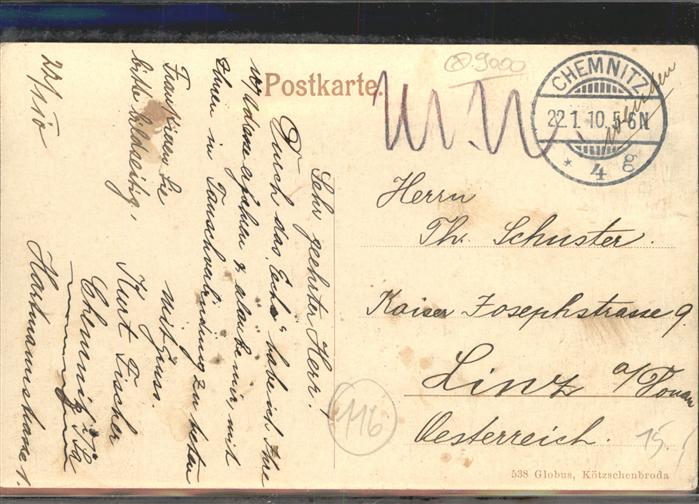 Postkarte.
⊗9000
CHEMNITZ
22.1.10. 5-6N
* 4 g
Herrn
Th. Schuster.
Kaiser Josephstrasse 9.
Linz a/Donau
Oesterreich.
15.
116
538 Globus, Kötzschenbroda
Sehr geehrter Herr!
Durch das "Echo" habe ich Ihre
Adresse erfahren & erlaube mir, mit
Ihnen in Tauschverbindung zu treten
Frankieren Sie
bitte bildseitig.
mit Gruss.
Kurt Fischer
Chemnitz i/Sa
Hartmannstrasse 1.
22/1 10